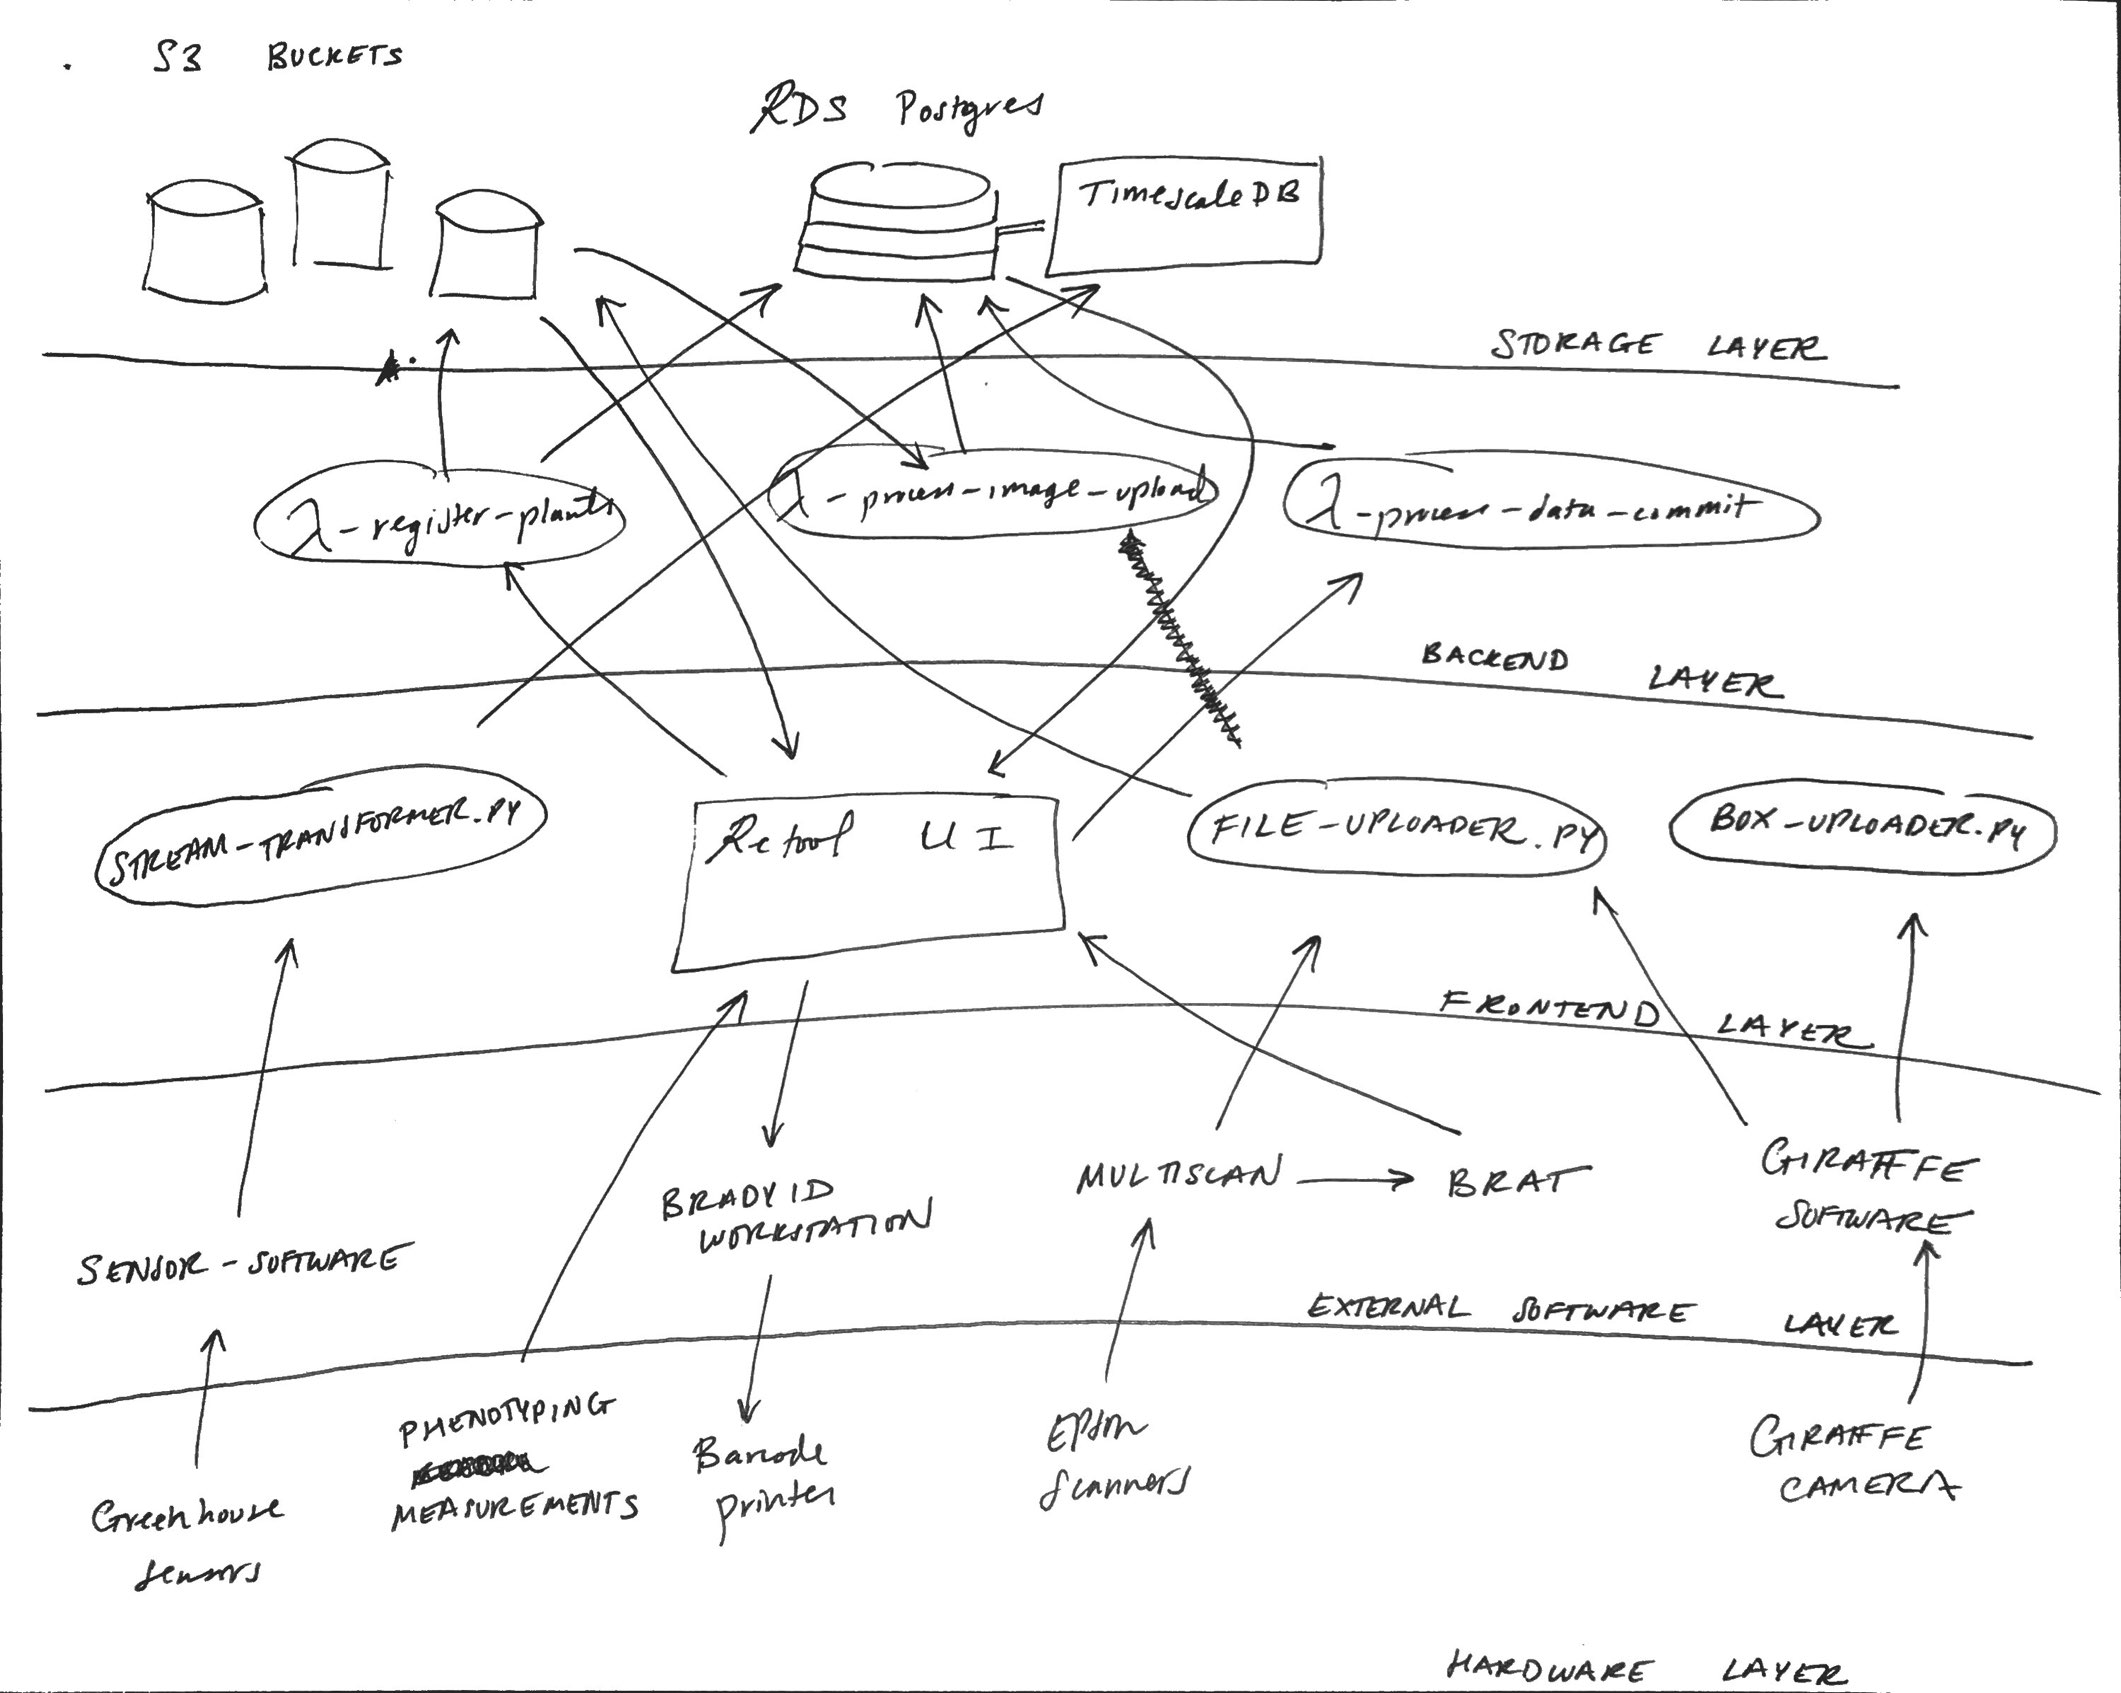 S3 BUCKETS
RDS Postgres
TimescaleDB
STORAGE LAYER
λ-register-plants
λ-process-image-upload
λ-process-data-commit
BACKEND LAYER
STREAM-TRANSFORMER.PY
Retool UI
FILE-UPLOADER.PY
BOX-UPLOADER.PY
FRONTEND LAYER
SENSOR-SOFTWARE
BRADY ID
WORKSTATION
MULTISCAN
BRAT
GIRAFFE
SOFTWARE
EXTERNAL SOFTWARE LAYER
Greenhouse
sensors
PHENOTYPING
MEASUREMENTS
Barcode
printer
Epson
Scanners
GIRAFFE
CAMERA
HARDWARE LAYER